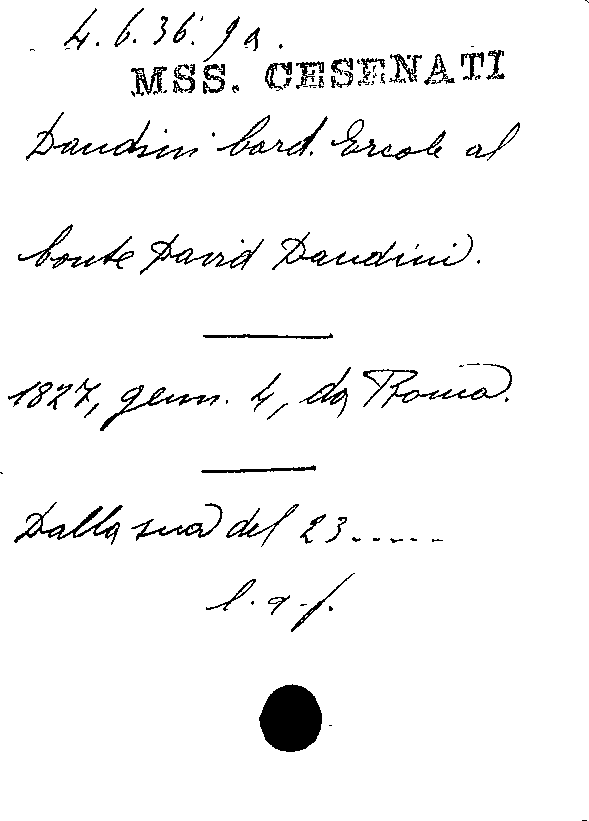 4.6.36.9a.
MSS. CESENATI
Dandini Card. Ercole al
Conte David Dandini.
1827, genn. 4, da Roma.
Dalla sua del 23.....
l. a. f.